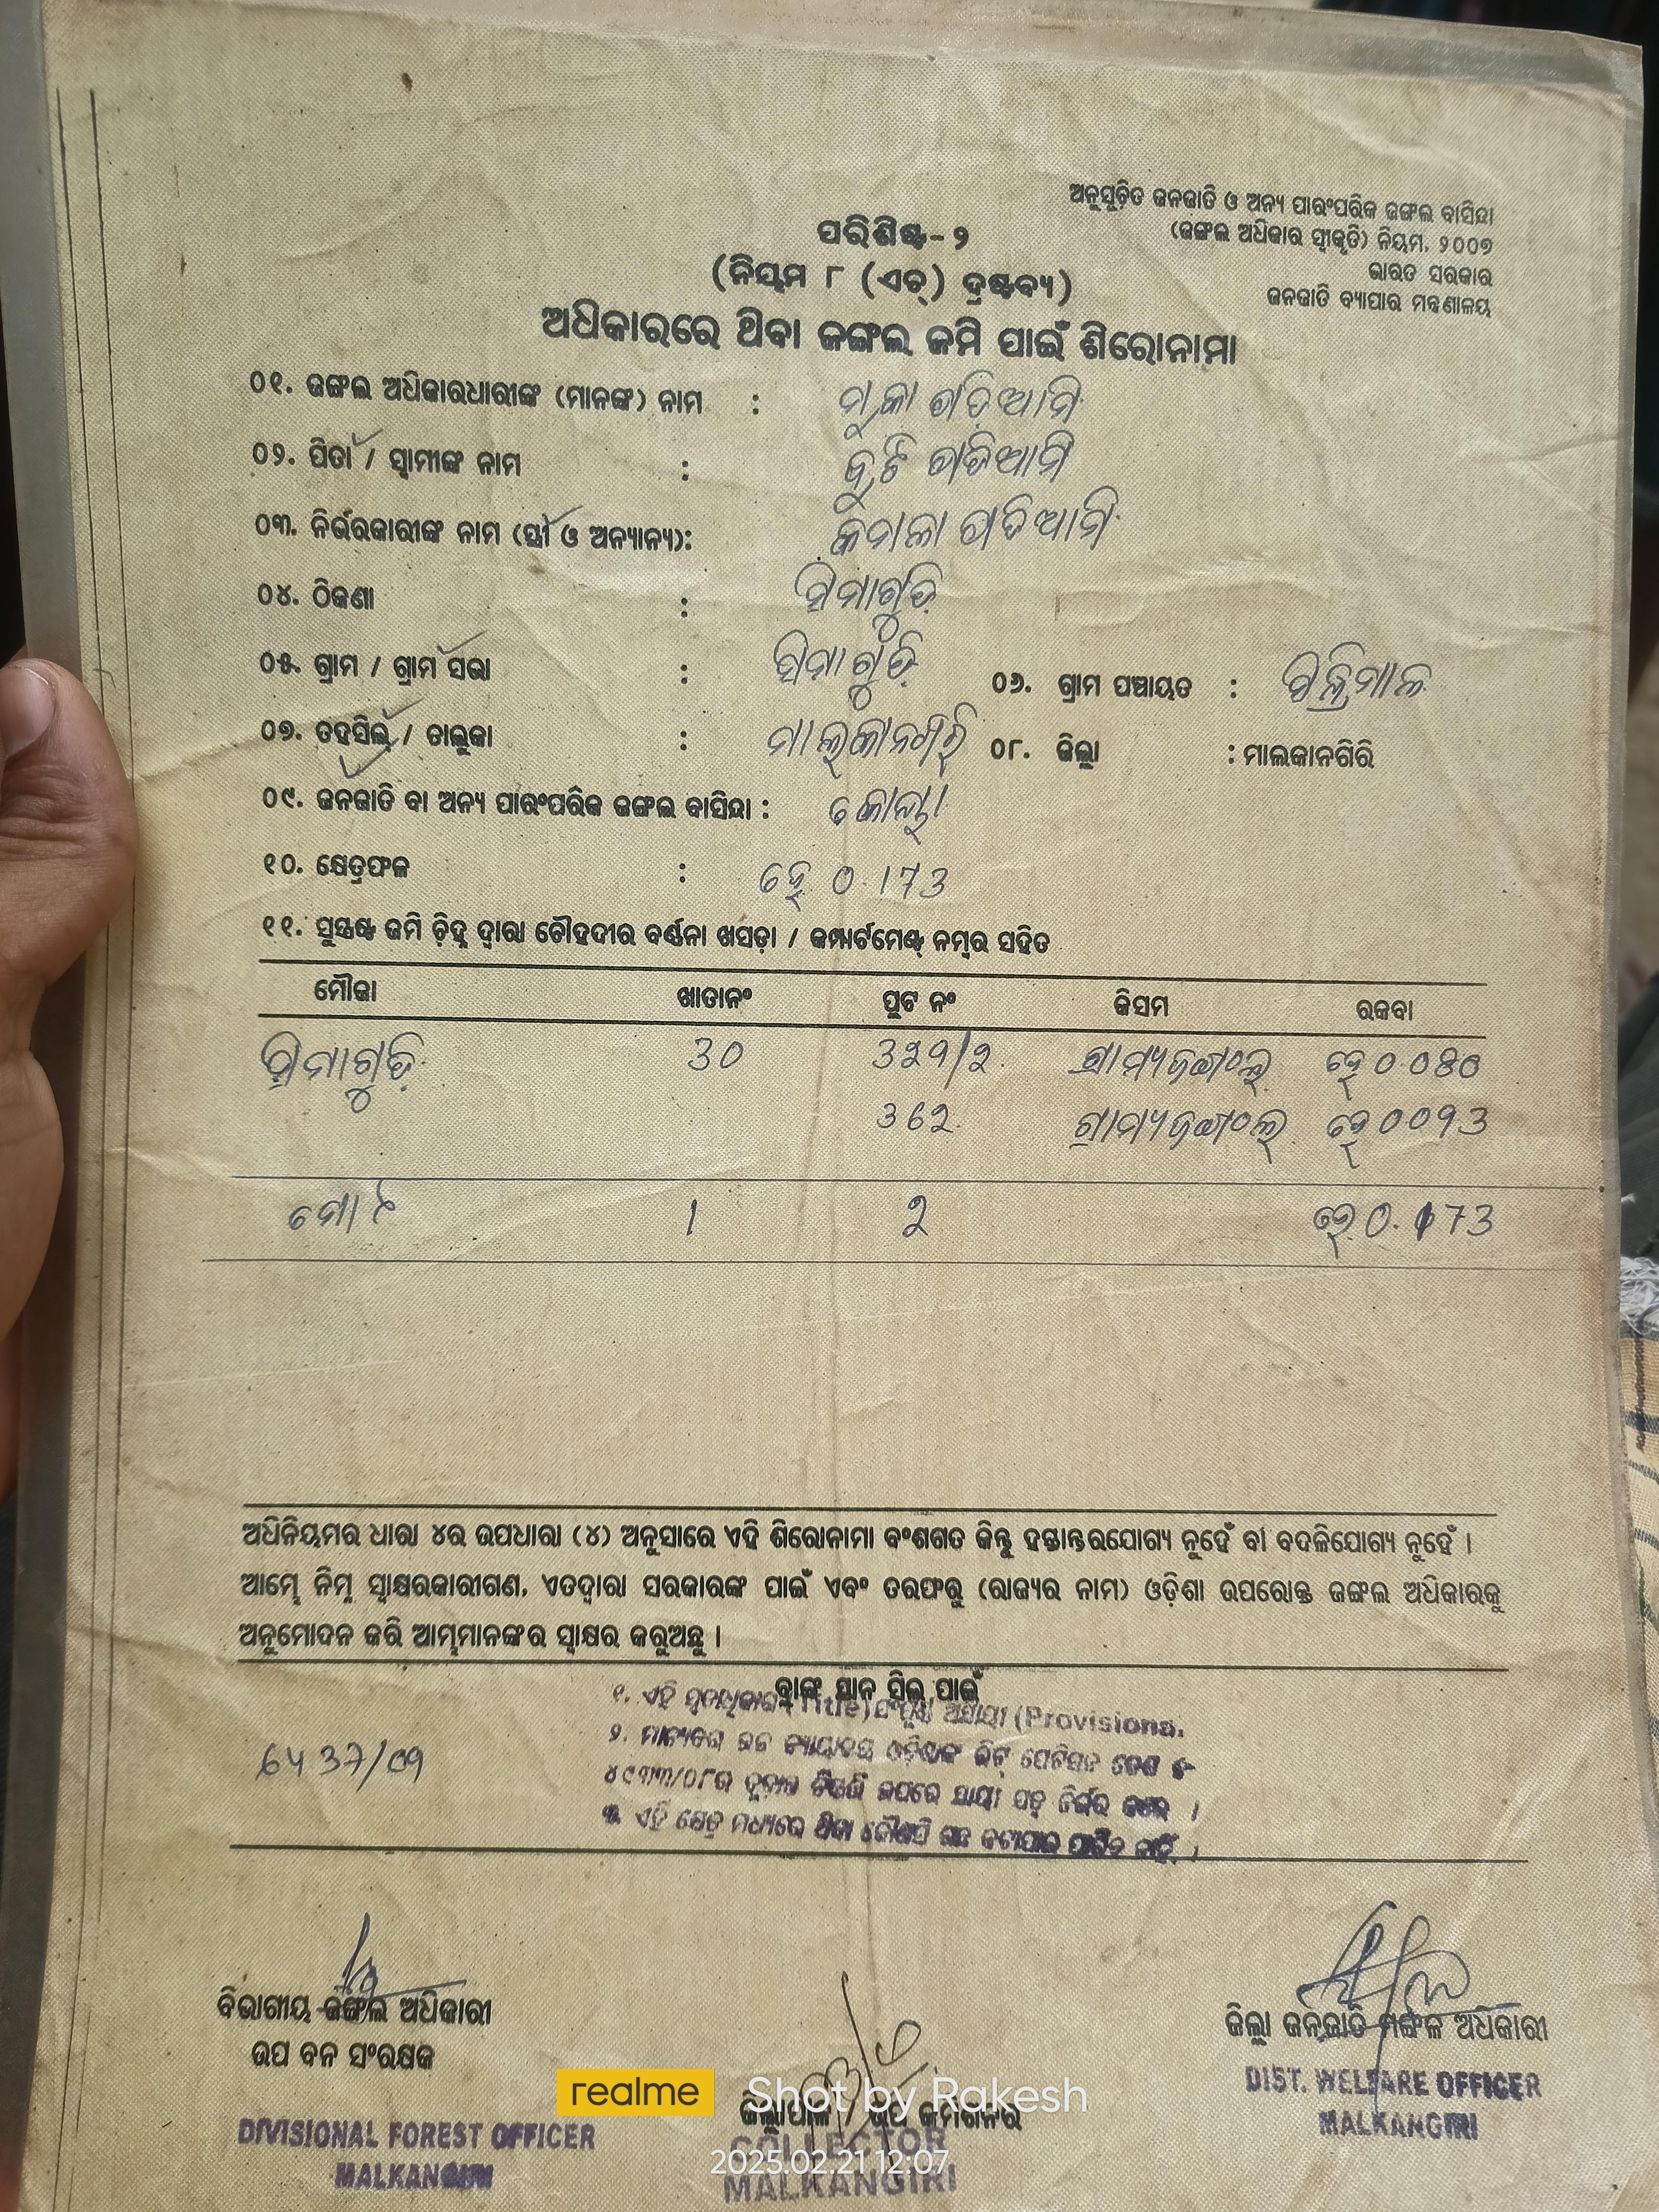 ଅନୁସୂଚିତ ଜନଜାତି ଓ ଅନ୍ୟ ପାରଂପରିକ ଜଙ୍ଗଲ ବାସିନ୍ଦା
(ଜଙ୍ଗଲ ଅଧିକାର ସ୍ୱୀକୃତି) ନିୟମ, ୨୦୦୭
ଭାରତ ସରକାର
ଜନଜାତି ବ୍ୟାପାର ମନ୍ତ୍ରଣାଳୟ
ପରିଶିଷ୍ଟ-୨
(ନିୟମ ୮ (ଏଚ୍) ଦ୍ରଷ୍ଟବ୍ୟ)
ଅଧିକାରରେ ଥିବା ଜଙ୍ଗଲ ଜମି ପାଇଁ ଶିରୋନାମା
୦୧. ଜଙ୍ଗଲ ଅଧିକାରଧାରୀଙ୍କ (ମାନଙ୍କ) ନାମ : ମୁକା ପଡିଆମି
୦୨. ପିତା / ସ୍ୱାମୀଙ୍କ ନାମ : ପଡିଆମି
୦୩. ନିର୍ଭରକାରୀଙ୍କ ନାମ (ସ୍ତ୍ରୀ ଓ ଅନ୍ୟାନ୍ୟ): ପଡିଆମି
୦୪. ଠିକଣା :
୦୫. ଗ୍ରାମ / ଗ୍ରାମ ସଭା : ୦୬. ଗ୍ରାମ ପଞ୍ଚାୟତ :
୦୭. ତହସିଲ୍ / ତାଲୁକା : ମାଲ୍କାନଗିରି ୦୮. ଜିଲ୍ଲା : ମାଲକାନଗିରି
୦୯. ଜନଜାତି ବା ଅନ୍ୟ ପାରଂପରିକ ଜଙ୍ଗଲ ବାସିନ୍ଦା : କୋୟା
୧୦. କ୍ଷେତ୍ରଫଳ : ହେ 0.173
୧୧. ସୁସ୍ପଷ୍ଟ ଜମି ଚିହ୍ନ ଦ୍ୱାରା ଚୌହଦୀର ବର୍ଣ୍ଣନା ଖସଡ଼ା / କମ୍ପାର୍ଟମେଣ୍ଟ ନମ୍ବର ସହିତ
ମୌଜା ଖାତାନଂ ପ୍ଲଟ ନଂ କିସମ ରକବା
30 ଗ୍ରାମ୍ୟଜଙ୍ଗଲ୍ ହେ
ଗ୍ରାମ୍ୟଜଙ୍ଗଲ୍ ହେ
ମୋଟ 1 ୨ ହେ 0.173
ଅଧିନିୟମର ଧାରା ୪ର ଉପଧାରା (୪) ଅନୁସାରେ ଏହି ଶିରୋନାମା ବଂଶଗତ କିନ୍ତୁ ହସ୍ତାନ୍ତରଯୋଗ୍ୟ ନୁହେଁ ବା ବଦଳିଯୋଗ୍ୟ ନୁହେଁ ।
ଆମ୍ଭେ ନିମ୍ନ ସ୍ୱାକ୍ଷରକାରୀଗଣ, ଏତଦ୍ୱାରା ସରକାରଙ୍କ ପାଇଁ ଏବଂ ତରଫରୁ (ରାଜ୍ୟର ନାମ) ଓଡ଼ିଶା ଉପରୋକ୍ତ ଜଙ୍ଗଲ ଅଧିକାରକୁ
ଅନୁମୋଦନ କରି ଆମ୍ଭମାନଙ୍କର ସ୍ୱାକ୍ଷର କରୁଅଛୁ ।
ପାଇଁ
୧. ଏହି (Title) (Provisional
୨.
ଉପରେ ନିର୍ଭର କରେ ।
୩. ଏହି କ୍ଷେତ୍ର ମଧ୍ୟରେ ଥିବା କୌଣସି ଗଛ କଟାଯାଇ ପାରିବ ନାହିଁ ।
37/09
ବିଭାଗୀୟ ଜଙ୍ଗଲ ଅଧିକାରୀ
ଉପ ବନ ସଂରକ୍ଷକ
DIVISIONAL FOREST OFFICER
MALKANGIRI
ଜିଲ୍ଲାପାଳ / ଉପ କମିଶନର
COLLECTOR
MALKANGIRI
ଜିଲ୍ଲା ଜନଜାତି ମଙ୍ଗଳ ଅଧିକାରୀ
DIST. WELFARE OFFICER
MALKANGIRI
realme Shot by Rakesh
2025.02.21 12:07